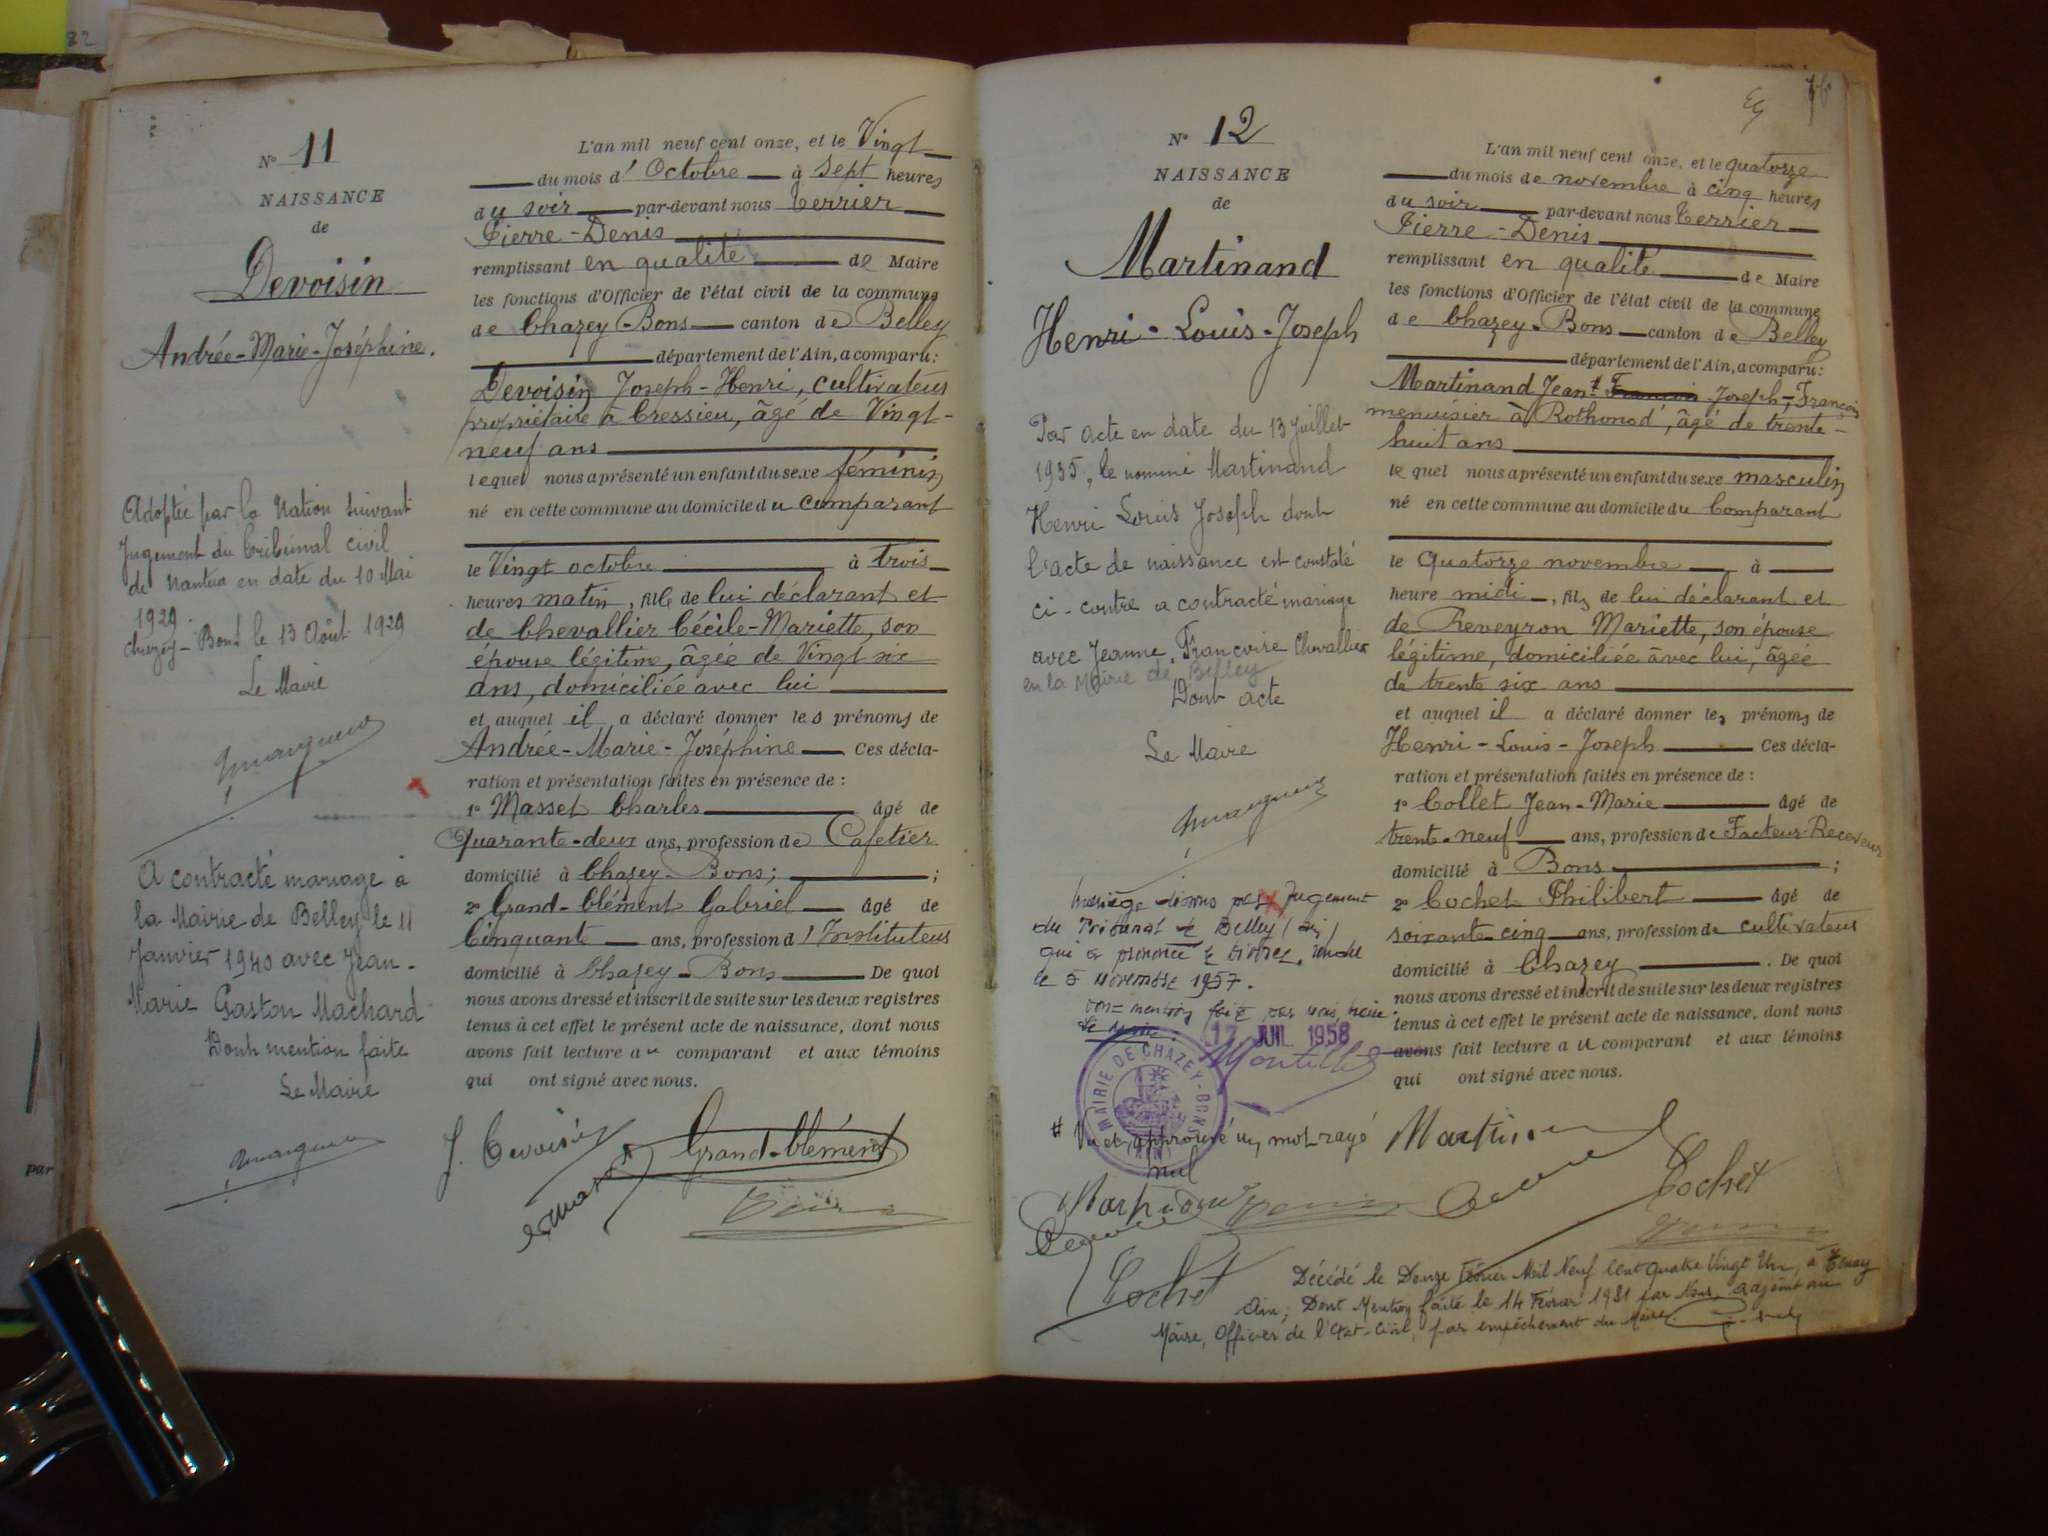 N° 11
NAISSANCE
de
Devoisin
Andrée-Marie-Joséphine.
Adoptée par la Nation suivant
Jugement du Tribunal civil
de Nantua en date du 10 Mai
1929.
Chazey-Bons le 13 Août 1929
Le Maire
A contracté mariage à
la Mairie de Belley le 11
Janvier 1940 avec Jean-
Marie Gaston Machard
Dont mention faite
Le Maire
L'an mil neuf cent onze, et le Vingt
du mois d'Octobre à sept heures
du soir par-devant nous Terrier
Pierre-Denis
remplissant en qualité de Maire
les fonctions d'Officier de l'état civil de la commune
de Chazey-Bons canton de Belley
département de l'Ain, a comparu:
Devoisin Joseph-Henri, cultivateur
propriétaire à Cressieu, âgé de Vingt-
neuf ans
lequel nous a présenté un enfant du sexe féminin
né en cette commune au domicile du comparant
le Vingt octobre à trois
heures matin, fille de lui déclarant et
de Chevallier Cécile-Mariette, son
épouse légitime, âgée de Vingt six
ans, domiciliée avec lui
et auquel il a déclaré donner les prénoms de
Andrée-Marie-Joséphine Ces décla-
ration et présentation faites en présence de :
1° Masset Charles âgé de
Quarante-deux ans, profession de Cafetier
domicilié à Chazey-Bons; ;
2° Grand-Clément Gabriel âgé de
Cinquante ans, profession d'Instituteur
domicilié à Chazey-Bons De quoi
nous avons dressé et inscrit de suite sur les deux registres
tenus à cet effet le présent acte de naissance, dont nous
avons fait lecture au comparant et aux témoins
qui ont signé avec nous.
J. Devoisin
Grand-Clément
N° 12
NAISSANCE
de
Martinand
Henri-Louis-Joseph
Par acte en date du 13 Juillet
1935, le nommé Martinand
Henri Louis Joseph dont
l'acte de naissance est constaté
ci-contre a contracté mariage
avec Jeanne Françoise Chevallier
en la Mairie de Belley
Dont acte
Le Maire
Mariage dissous par Jugement
du Tribunal de Belley (Ain)
qui a prononcé le divorce, rendu
le 5 novembre 1957.
Dont mention faite par nous, Maire
Le Maire
17 JUIL 1958
MAIRIE DE CHAZEY-BONS
(AIN)
# Vu et approuvé un mot rayé
nul
L'an mil neuf cent onze, et le quatorze
du mois de novembre à cinq heures
du soir par-devant nous Terrier
Pierre-Denis
remplissant en qualité de Maire
les fonctions d'Officier de l'état civil de la commune
de Chazey-Bons canton de Belley
département de l'Ain, a comparu:
Martinand Jean # Joseph-François
menuisier à Rothonod, âgé de trente-
huit ans
lequel nous a présenté un enfant du sexe masculin
né en cette commune au domicile du Comparant
le Quatorze novembre à
heure midi, fils de lui déclarant et
de Reveyron Mariette, son épouse
légitime, domiciliée avec lui, âgée
de trente six ans
et auquel il a déclaré donner les prénoms de
Henri-Louis-Joseph Ces décla-
ration et présentation faites en présence de :
1° Collet Jean-Marie âgé de
trente-neuf ans, profession de Facteur-Receveur
domicilié à Bons ;
2° Cochet Philibert âgé de
soixante-cinq ans, profession de cultivateur
domicilié à Chazey . De quoi
nous avons dressé et inscrit de suite sur les deux registres
tenus à cet effet le présent acte de naissance, dont nous
avons fait lecture au comparant et aux témoins
qui ont signé avec nous.
Cochet
Cochet
Décédé le Douze Février Mil Neuf Cent Quatre Vingt Un, à Tenay
Ain; Dont Mention faite le 14 Février 1981 par Nous, adjoint au
Maire, Officier de l'Etat-Civil, par empêchement du Maire.